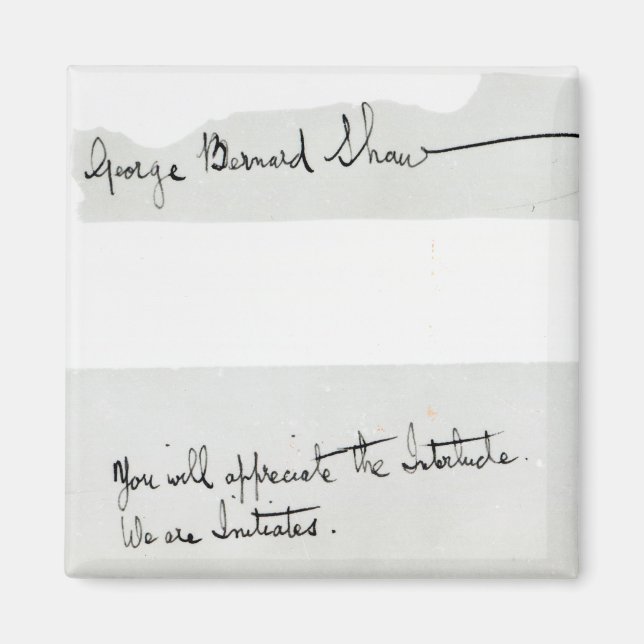 George Bernard Shaw
You will appreciate the Interlude.
We are Initiates.